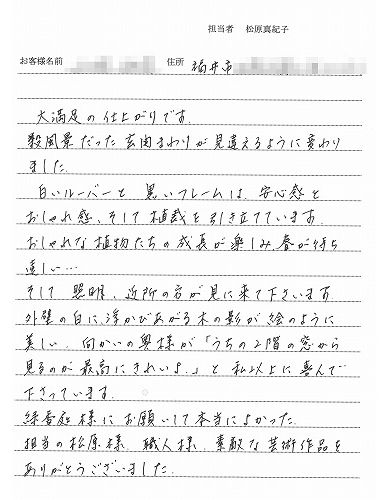 担当者 松原真紀子
お客様名前 住所 福井市
大満足の仕上がりです.
殺風景だった玄関まわりが見違えるように変わり
ました.
白いルーバーと 黒いフレームは、安心感と
おしゃれ感、そして植栽を引き立てています.
おしゃれな植物たちの成長が楽しみ、春が待ち
遠しい…
そして 照明、近所の方が見に来て下さいます
外壁の白に、浮かびあがる木の影が絵のように
美しい. 向かいの奥様が「うちの2階の窓から
見るのが最高にきれいよ。」と私以上に喜んで
下さっています.
緑香庭様にお願いして本当によかった.
担当の松原様、職人様、素敵な芸術作品を
ありがとうございました.